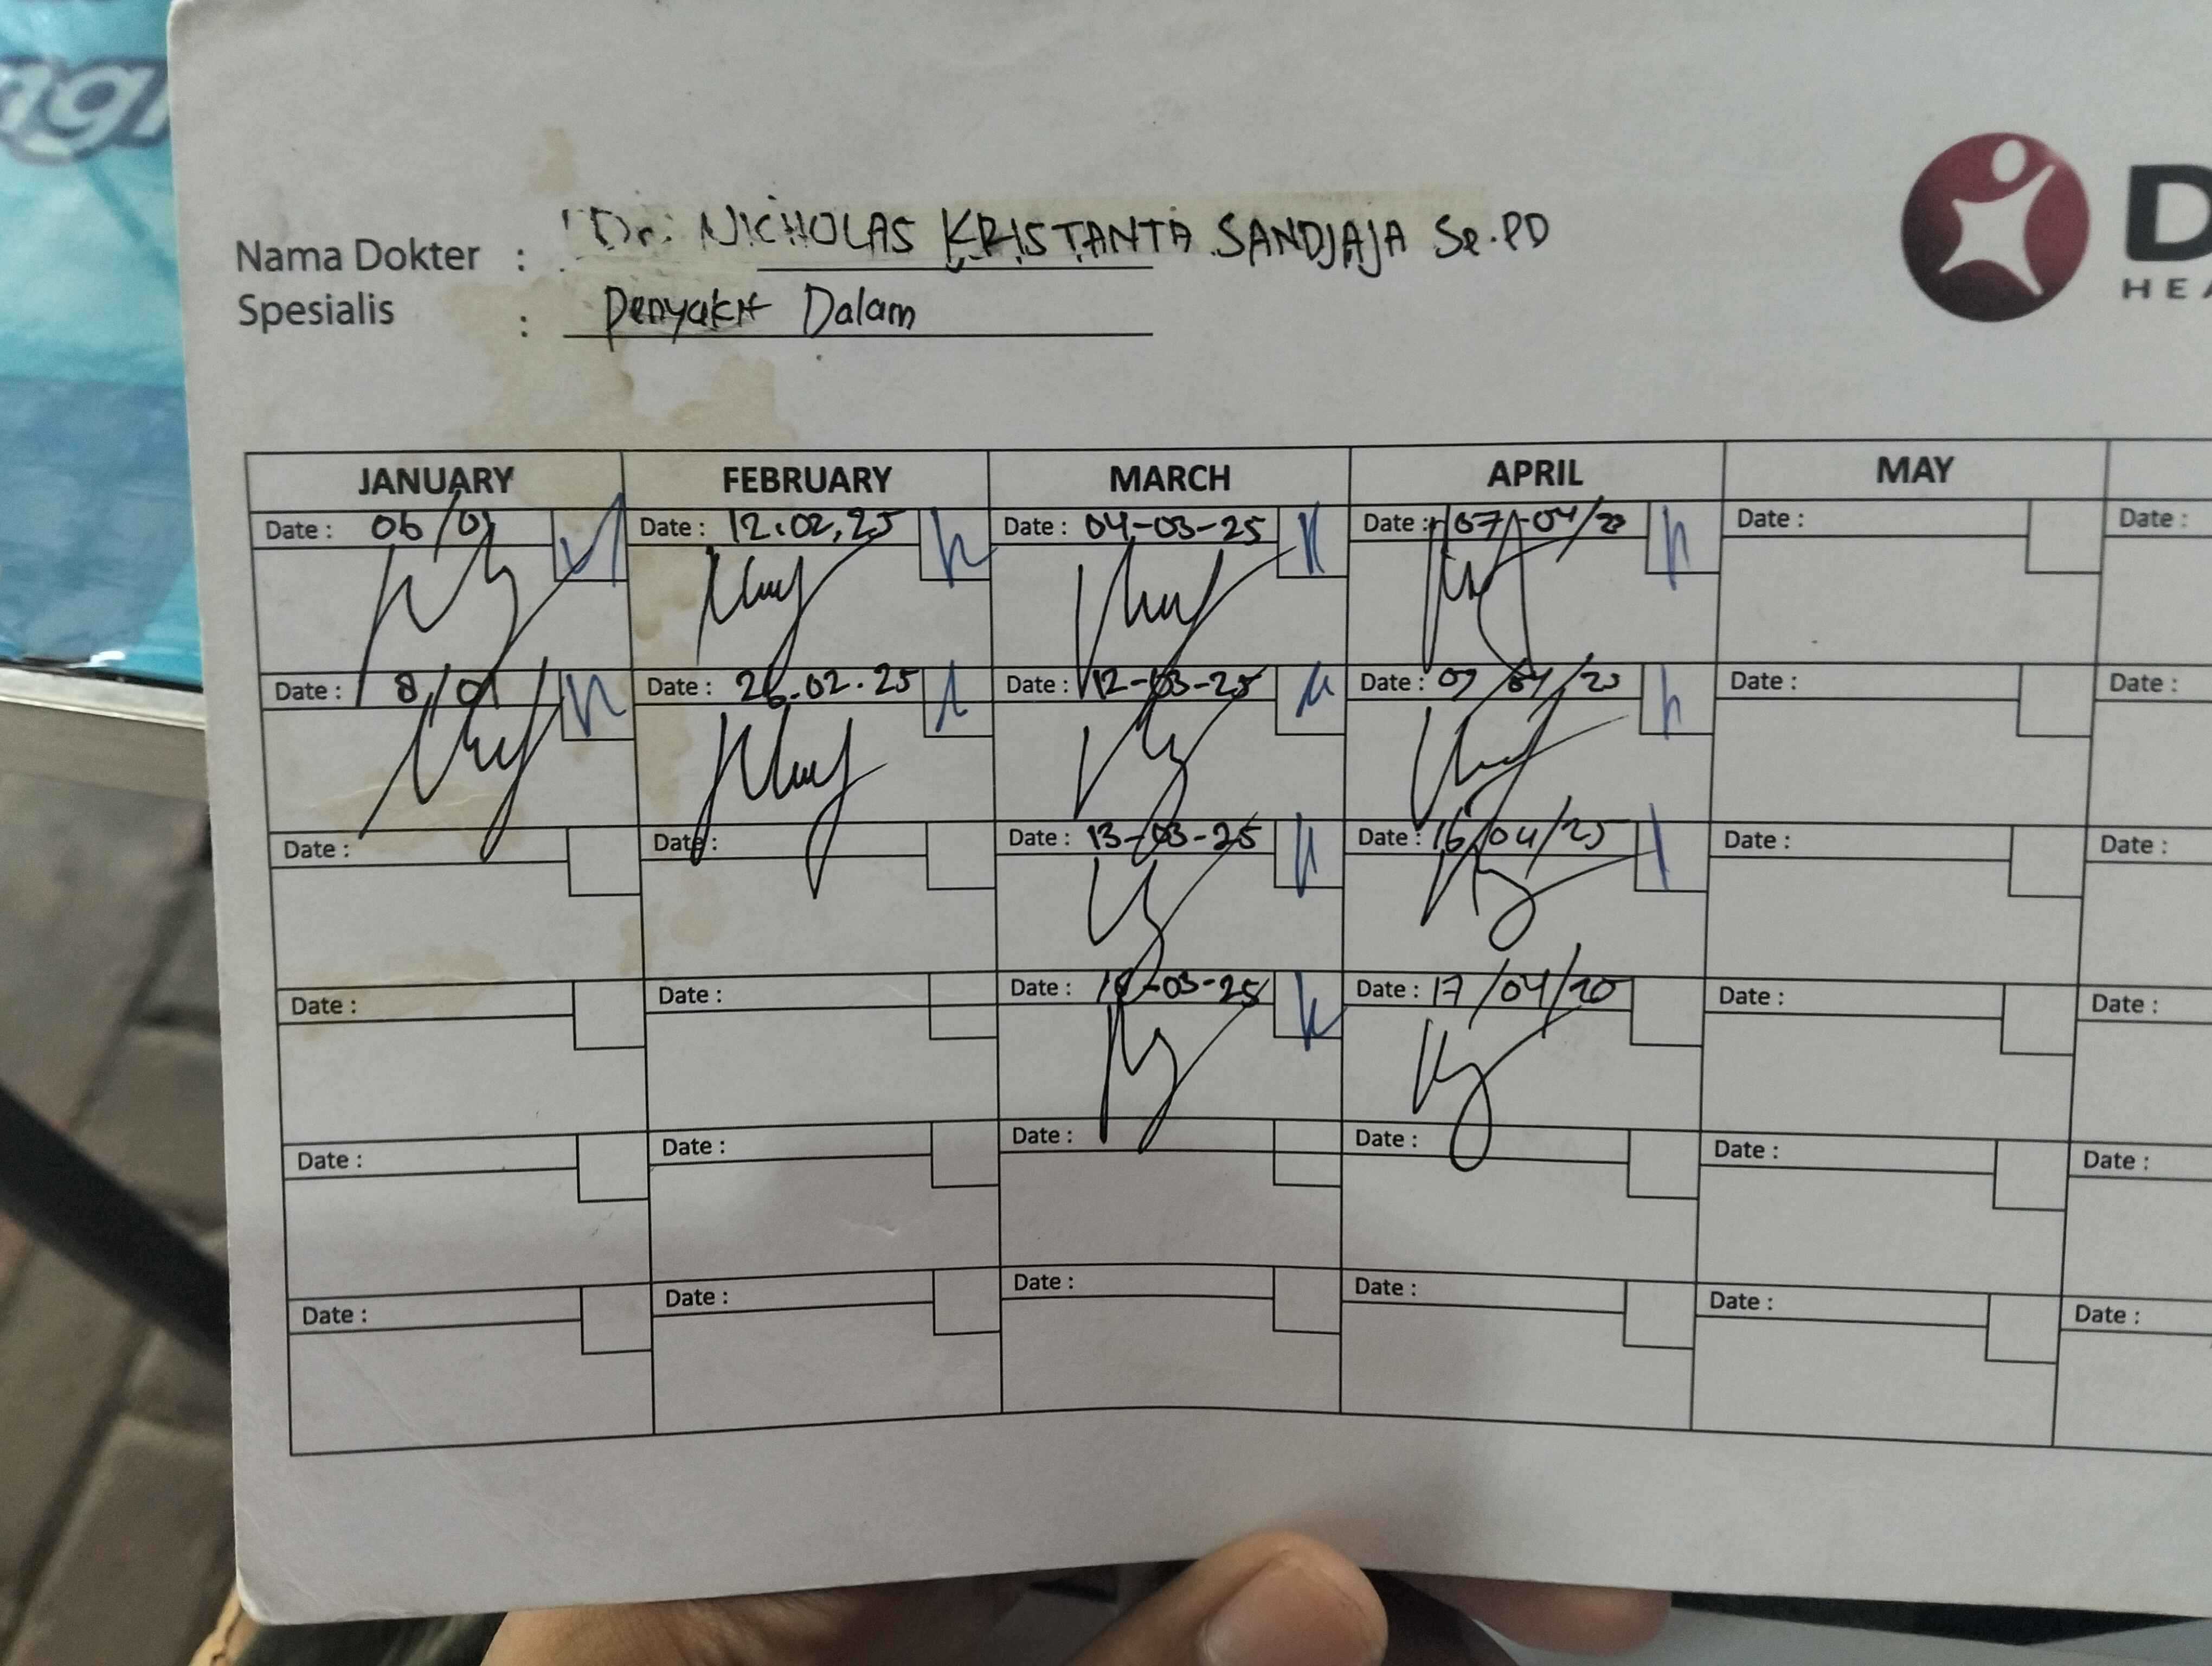 Nama Dokter : Dr. NICHOLAS KRISTANTA SANDJAJA Sp.PD
Spesialis : Penyakit Dalam
D
HEA
JANUARY FEBRUARY MARCH APRIL MAY
Date : 06/01 Date : 12.02.25 Date : 04-03-25 Date : 07-04/25 Date : Date :
Date : 8/01 Date : 26.02.25 Date : 12-03-25 Date : 09/04/25 Date : Date :
Date : Date : Date : 13-03-25 Date : 16/04/25 Date : Date :
Date : Date : Date : -03-25 Date : 17/04/25 Date : Date :
Date : Date : Date : Date : Date : Date :
Date : Date : Date : Date : Date : Date :